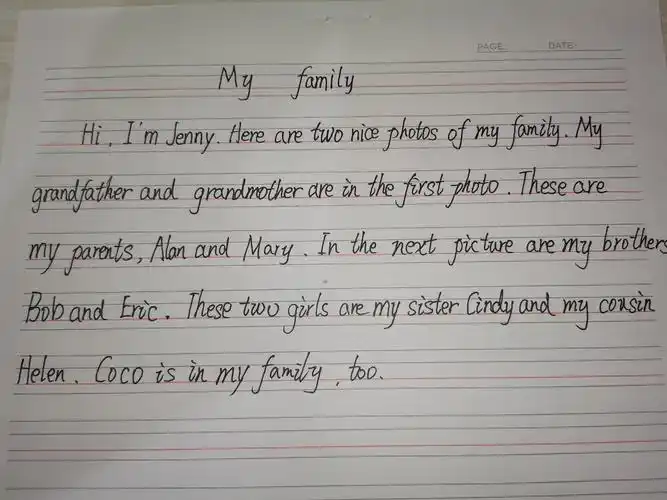 PAGE: DATE:
My family
Hi, I'm Jenny. Here are two nice photos of my family. My
grandfather and grandmother are in the first photo. These are
my parents, Alan and Mary. In the next picture are my brothers
Bob and Eric. These two girls are my sister Cindy and my cousin
Helen. Coco is in my family, too.